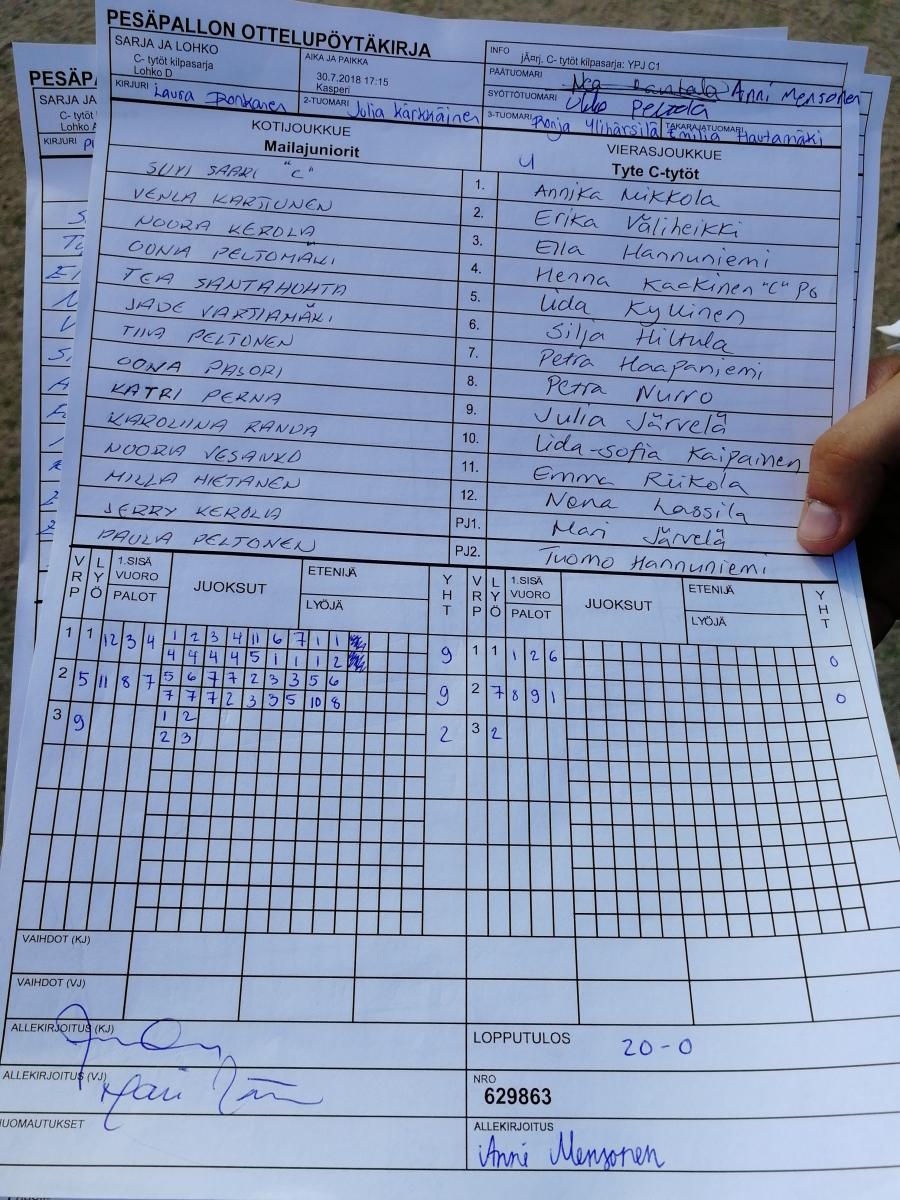 PESÄPALLON OTTELUPÖYTÄKIRJA
SARJA JA LOHKO
C- tytöt kilpasarja
Lohko D
AIKA JA PAIKKA
30.7.2018 17:15
Kasperi
INFO
jÃ¤rj. C- tytöt kilpasarja: YPJ C1
PÄÄTUOMARI Anni Mensonen
KIRJURI Laura
2-TUOMARI Julia Kärkhäinen
SYÖTTÖTUOMARI Ukko Peltola
3-TUOMARI Ronja Ylihärsilä TAKARAJATUOMARI Emilia Hautamäki
KOTIJOUKKUE
Mailajuniorit
U VIERASJOUKKUE
Tyte C-tytöt
SUVI SAARI "C" 1. Annika Mikkola
VENLA KARTTUNEN 2. Erika Väliheikki
NOORA KEROLA 3. Ella Hannuniemi
OONA PELTOMÄKI 4. Henna Kackinen "C" PG
TEA SANTAHUHTA 5. Iida Kyllinen
JADE VARTIAMÄKI 6. Silja Hiltula
TIIA PELTONEN 7. Petra Haapaniemi
OONA PAJORI 8. Petra Nurro
KATRI PERNA 9. Julia Järvelä
KAROLIINA RANUA 10. Iida-sofia Kaipainen
NOORA VESANKO 11. Emma Riikola
MILLA HIETANEN 12. Nona Lassila
JERRY KEROLA PJ1. Mari Järvelä
PAULA PELTONEN PJ2. Tuomo Hannuniemi
VRP LYÖ 1.SISÄ VUORO PALOT JUOKSUT ETENIJÄ LYÖJÄ YHT VRP LYÖ 1.SISÄ VUORO PALOT JUOKSUT ETENIJÄ LYÖJÄ YHT
1 1 12 3 4 1 2 3 4 11 6 7 1 1 9 1 1 1 2 6 0
4 4 4 4 5 1 1 1 2
2 5 11 8 7 5 6 7 7 2 3 3 5 6 9 2 7 8 9 1 0
7 7 7 2 3 3 5 10 8
3 9 1 2 2 3 2
2 3
VAIHDOT (KJ)
VAIHDOT (VJ)
ALLEKIRJOITUS (KJ)
LOPPUTULOS 20-0
ALLEKIRJOITUS (VJ)
NRO
629863
HUOMAUTUKSET
ALLEKIRJOITUS
Anni Mensonen